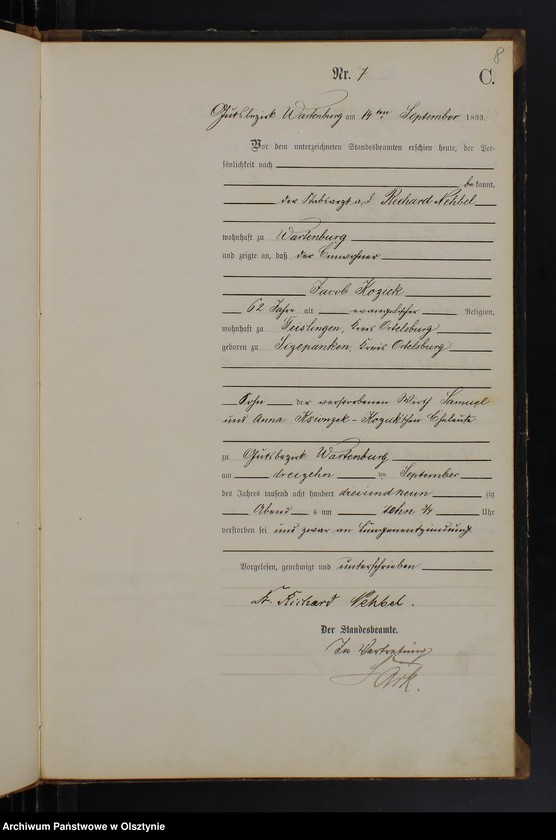 8
Nr. 7
C.
Gutsbezirk Wartenburg am 14 ten September 1893.
Vor dem unterzeichneten Standesbeamten erschien heute, der Per-
sönlichkeit nach
bekannt,
der Stabsarzt a. D. Richard Nehbel
wohnhaft zu Wartenburg
und zeigte an, daß der Einwohner
Jacob Kozick
62 Jahre alt evangelischer Religion,
wohnhaft zu Kreis Ortelsburg
geboren zu Kreis Ortelsburg
Sohn der verstorbenen Wirth Samuel
und Anna Eheleute
zu Gutsbezirk Wartenburg
am dreizehn ten September
des Jahres tausend acht hundert dreiundneun zig
Abend s um zehn 3/4 Uhr
verstorben sei und zwar an Lungenentzündung.
Vorgelesen, genehmigt und unterschrieben
Dr. Richard Nehbel.
Der Standesbeamte.
In Vertretung
Archiwum Państwowe w Olsztynie